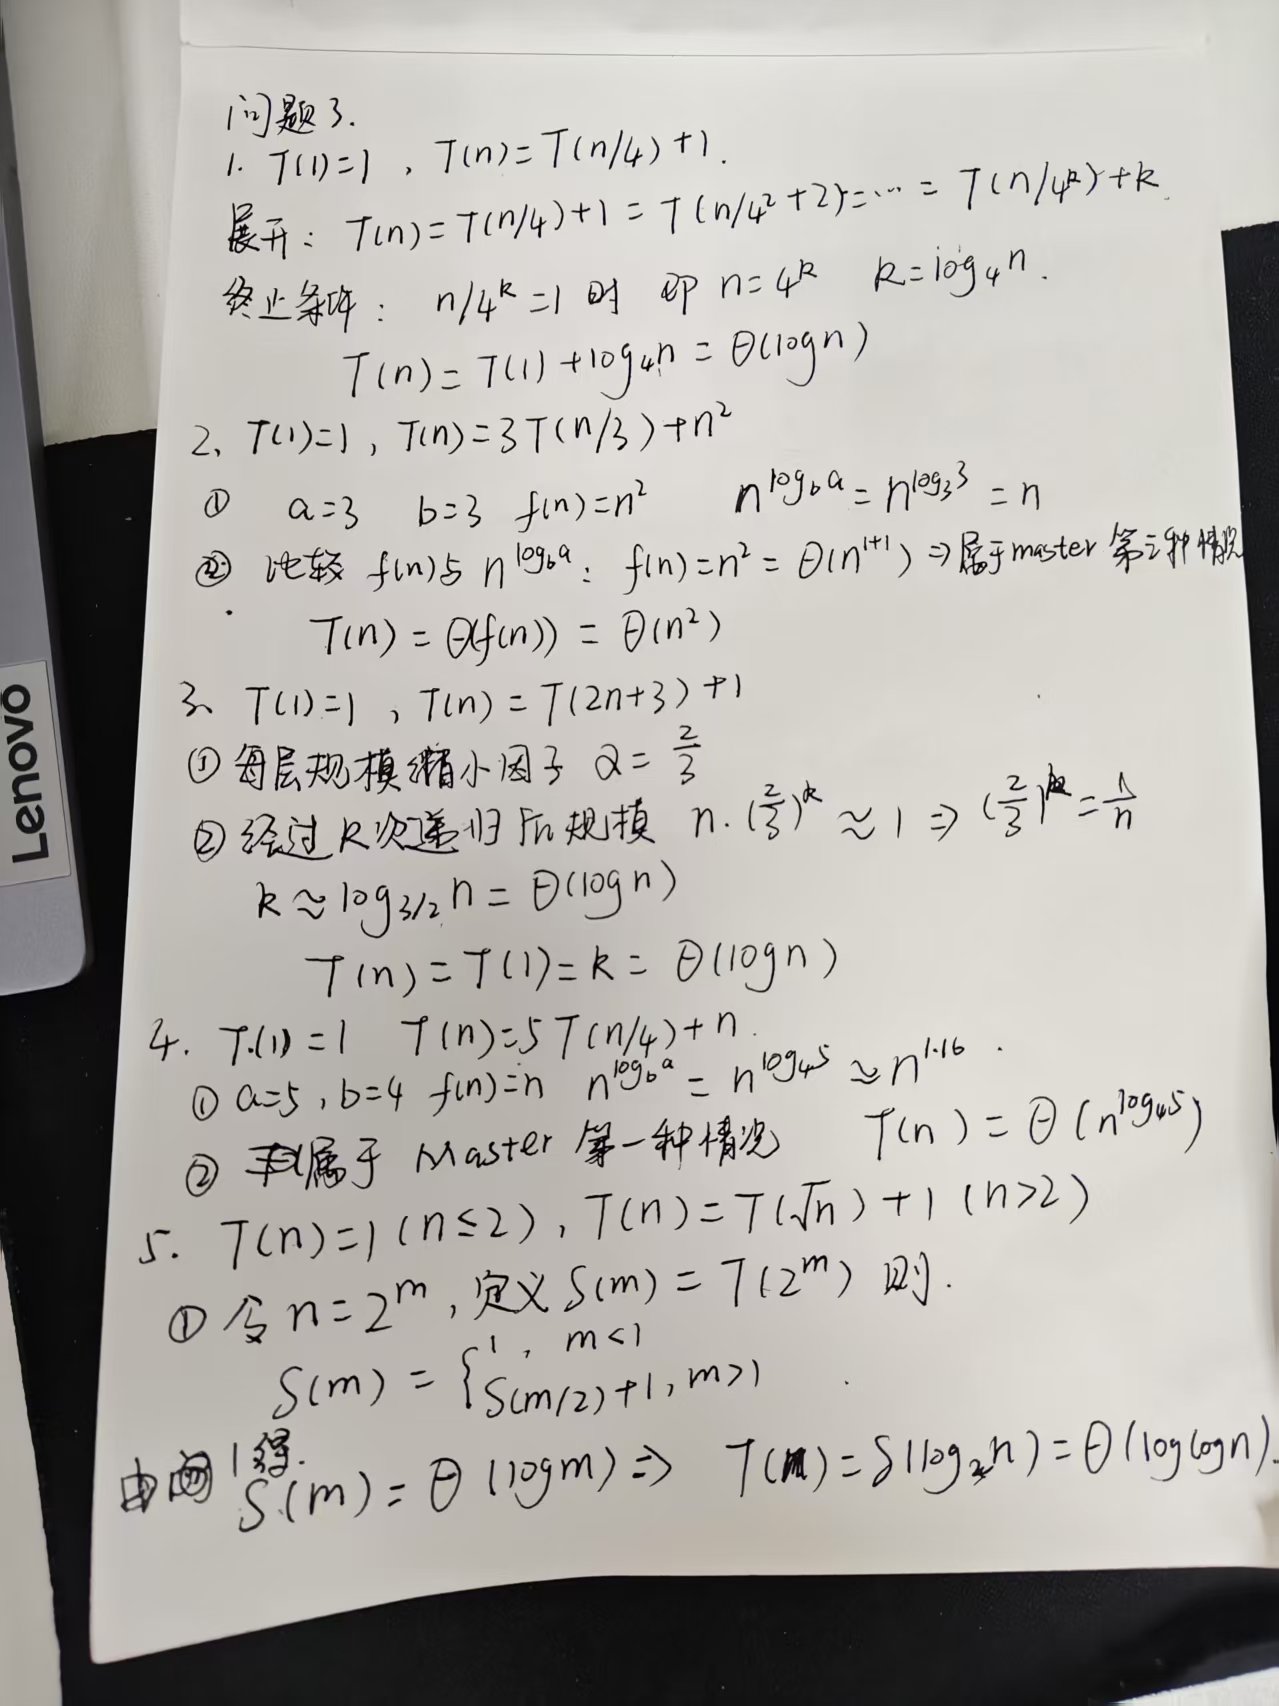 问题3.
1. T(1)=1 , T(n)=T(n/4)+1.
展开: T(n)=T(n/4)+1=T(n/4²+2)=…=T(n/4ᵏ)+k.
终止条件: n/4ᵏ=1 时 即 n=4ᵏ k=log₄n.
T(n)=T(1)+log₄n=Θ(logn)
2、T(1)=1, T(n)=3T(n/3)+n²
① a=3 b=3 f(n)=n² n^log_b a = n^log₃3 = n
② 比较 f(n)与 n^log_b a: f(n)=n²=Θ(n¹⁺¹) ⇒属于master 第三种情况
T(n)=Θ(f(n))=Θ(n²)
3、T(1)=1 , T(n)=T(2n+3)+1
① 每层规模缩小因子 α=2/3
② 经过k次递归后规模 n·(2/3)ᵏ≈1⇒(2/3)ᵏ=1/n
k≈log₃/₂n=Θ(logn)
T(n)=T(1)=k=Θ(logn)
4. T(1)=1 T(n)=5T(n/4)+n.
① a=5, b=4 f(n)=n n^log_b a = n^log₄5 ≈ n^1.16.
② 属于 Master 第一种情况 T(n)=Θ(n^log₄5)
5. T(n)=1(n≤2), T(n)=T(√n)+1 (n>2)
① 令 n=2ᵐ, 定义 S(m)=T(2ᵐ) 则.
S(m)={1, m<1
S(m/2)+1, m>1
由问1得.
S(m)=Θ(logm)⇒ T(n)=S(log₂n)=Θ(loglogn).
Lenovo